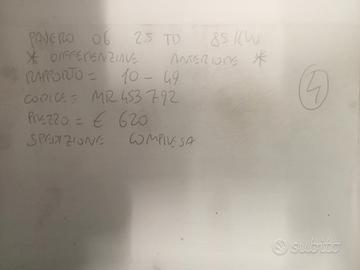 PAJERO 06 2.5 TD 85 KW
* DIFFERENZIALE ANTERIORE *
RAPPORTO = 10 - 49
CODICE = MR453792
PREZZO = € 620
SPEDIZIONE COMPRESA
4
subito